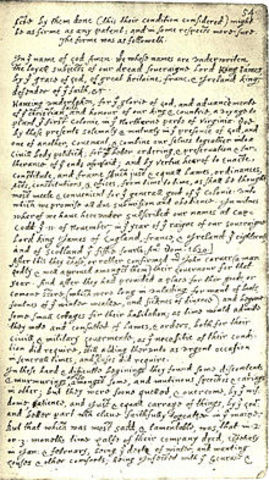 54
firste by them done (this their condition considered) might
be as firme as any patent; and in some respects more sure.
The forme was as followeth.
In ye name of god Amen. We whose names are underwriten,
the loyall subjects of our dread soveraigne Lord King James
by ye grace of god, of great Britaine, franc, & Ireland king,
defender of ye faith, &c
Haveing undertaken, for ye glorie of god, and advancemente
of ye christian faith and honour of our king & countrie, a voyage to
plant ye first colonie in ye Northerne parts of Virginia. Doe
by these presents solemnly & mutualy in ye presence of god, and
one of another, covenant, & combine our selves togeather into a
civill body politick; for our better ordering, & preservation & fur-
therance of ye ends aforesaid; and by vertue hearof to enacte,
constitute, and frame shuch just & equall Lawes, ordinances,
Acts, constitutions, & offices, from time to time, as shall be thought
most meete & convenient for ye generall good of ye colonie: unto
which we promise all due submission and obedience. In witnes
wherof we have hereunder subscribed our names at Cap-
Codd ye .11. of November, in ye year of ye raigne of our soveraigne
Lord king James of England, france, & Ireland ye eighteenth
and of Scotland ye fiftie fourth. Ano: Dom. 1620.
After this they chose, or rather confirmed mr John Carver (a man
godly & well approved amongst them) their Governour for that
year. And after they had provided a place for their goods, or
comone store, (which were long in unlading for want of boats,
foulnes of ye winter weather, and sicknes of diverce) and begune
some small cottages for their habitation; as time would admitte
they mette and consulted of lawes, & orders, both for their
civill & military Govermente, as ye necessitie of their condi-
tion did require, still adding therunto as urgent occasion
in severall times, and as cases did require.
In these hard & difficulte beginings they found some discontents
& murmurings arise amongst some, and mutinous speeches & cariags
in other; but they were soone quelled, & overcome, by ye wis-
dome, patience, and just & equall carrage of things, by ye Govr
and better part which clave faithfully togeather in ye maine.
But that which was most sadd, & lamentable, was, that in 2.
or 3. moneths time halfe of their company dyed, espetialy
in Jan: & february, being ye depth of winter, and wanting
houses & other comforts; being infected with ye scurvie &